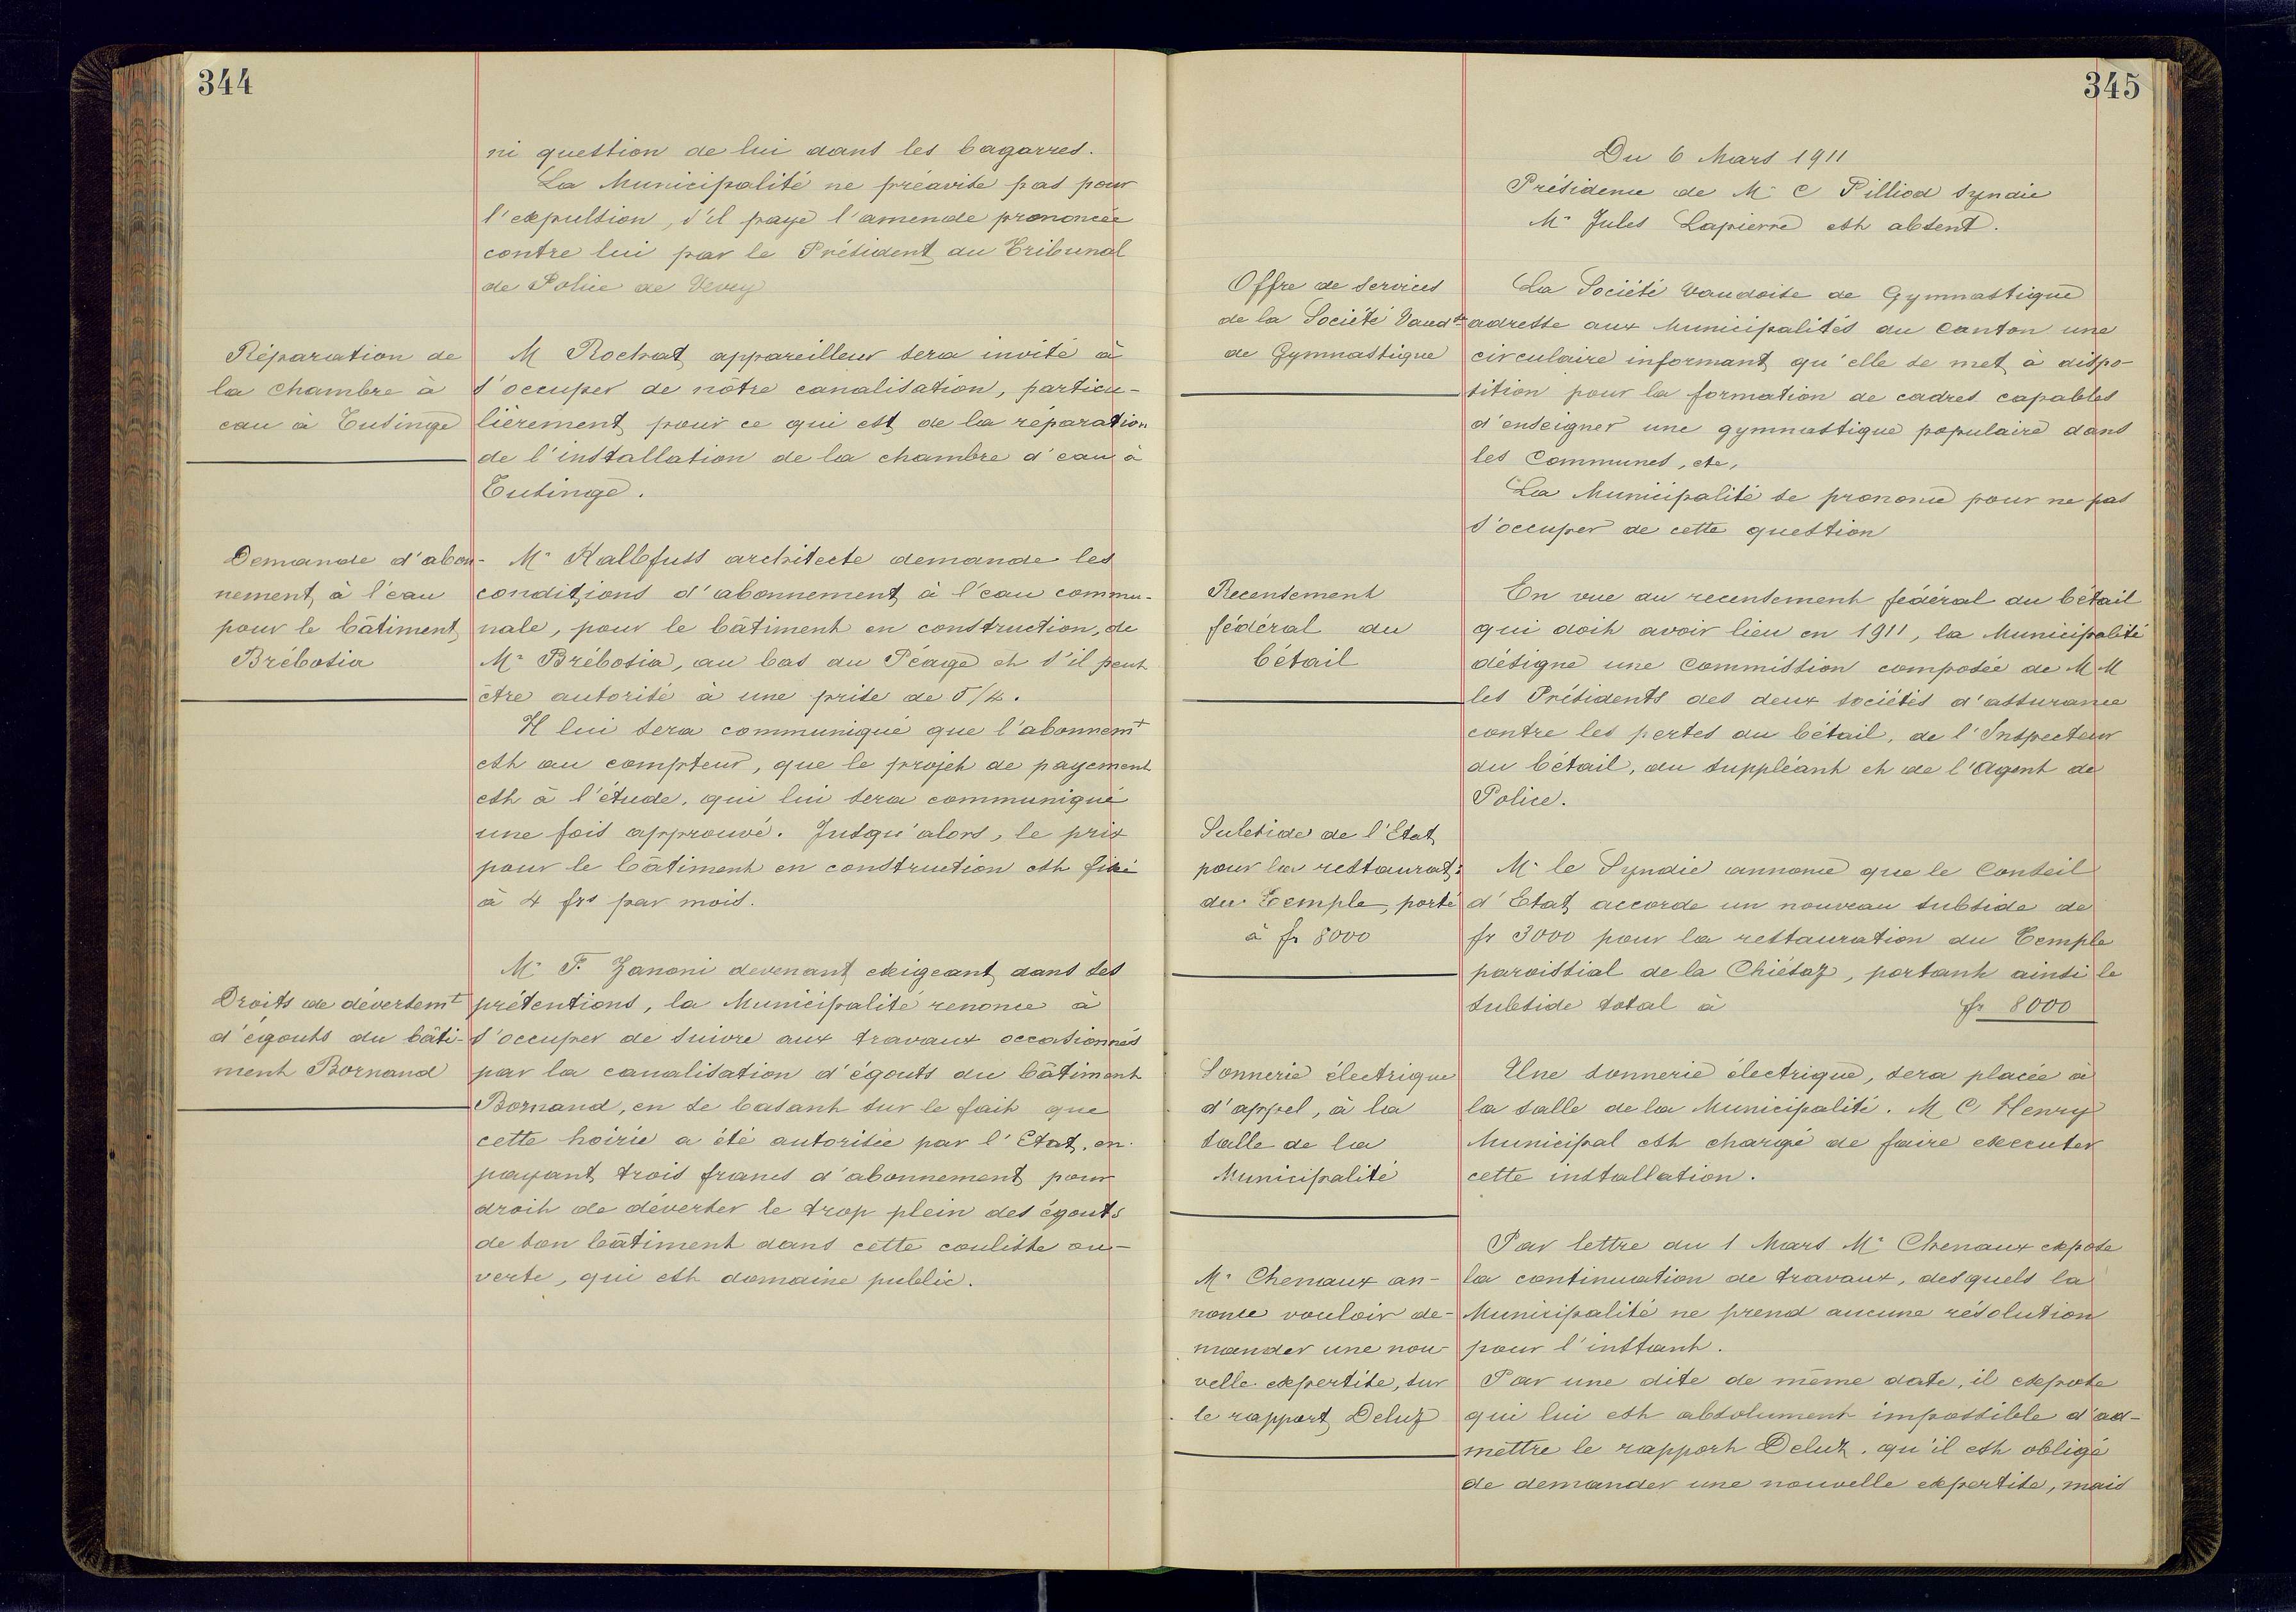 344
ni question de lui dans les bagarres.
La Municipalité ne préavise pas pour
l'expulsion, s'il paye l'amende prononcée
contre lui par le Président du Tribunal
de Police de Vevey
Réparation de
la chambre à
eau à Tusinge
M Rochat appareilleur sera invité à
s'occuper de nôtre canalisation, particu-
lièrement pour ce qui est de la réparation
de l'installation de la chambre d'eau à
Tusinge.
Demande d'abon-
nement à l'eau
pour le bâtiment
Brébosia
Mr Kalbfuss architecte demande les
conditions d'abonnement à l'eau commu-
nale, pour le bâtiment en construction, de
Mr Brébosia, au bas du Péage et s'il peut
être autorisé à une prise de 5/4.
Il lui sera communiqué que l'abonnemt
est au compteur, que le projet de payement
est à l'étude, qui lui sera communiqué
une fois approuvé. Jusqu'alors, le prix
pour le bâtiment en construction est fixé
à 4 frs par mois.
Droits de déversemt
d'égouts du bâti-
ment Bornand
Mr F. Zanoni devenant exigeant dans ses
prétentions, la Municipalité renonce à
s'occuper de suivre aux travaux occasionnés
par la canalisation d'égouts du bâtiment
Bornand, en se basant sur le fait que
cette hoirie a été autorisée par l'Etat, en
payant trois francs d'abonnement pour
droit de déverser le trop plein des égouts
de son bâtiment dans cette coulisse ou-
verte, qui est domaine public.
345
Du 6 Mars 1911
Présidence de Mr C Pilliod Syndic
Mr Jules Lapierre est absent.
Offre de services
de la Société Vaudse
de Gymnastique
La Société Vaudoise de Gymnastique
adresse aux Municipalités du Canton une
circulaire informant qu'elle se met à dispo-
sition pour la formation de cadres capables
d'enseigner une gymnastique populaire dans
les Communes, etc,
La Municipalité se prononce pour ne pas
s'occuper de cette question
Recensement
fédéral du
bétail
En vue du recensement fédéral du bétail
qui doit avoir lieu en 1911, la Municipalité
désigne une Commission composée de MM
les Présidents des deux sociétés d'assurance
contre les pertes du bétail, de l'Inspecteur
du bétail, du suppléant et de l'Agent de
Police.
Subside de l'Etat
pour la restaurat:
du Temple, porté
à fr 8000
Mr le Syndic annonce que le Conseil
d'Etat accorde un nouveau subside de
fr 3000 pour la restauration du Temple
paroissial de la Chiésaz, portant ainsi le
subside total à fr 8000
Sonnerie électrique
d'appel, à la
salle de la
Municipalité
Une sonnerie électrique, sera placée à
la salle de la Municipalité. M C Henry
Municipal est chargé de faire executer
cette installation.
Mr Chenaux an-
nonce vouloir de-
mander une nou-
velle expertise, sur
le rapport Deluz
Par lettre du 1 Mars Mr Chenaux expose
la continuation de travaux, desquels la
Municipalité ne prend aucune résolution
pour l'instant.
Par une dite de même date, il expose
qui lui est absolument impossible d'ad-
mettre le rapport Deluz. qu'il est obligé
de demander une nouvelle expertise, mais